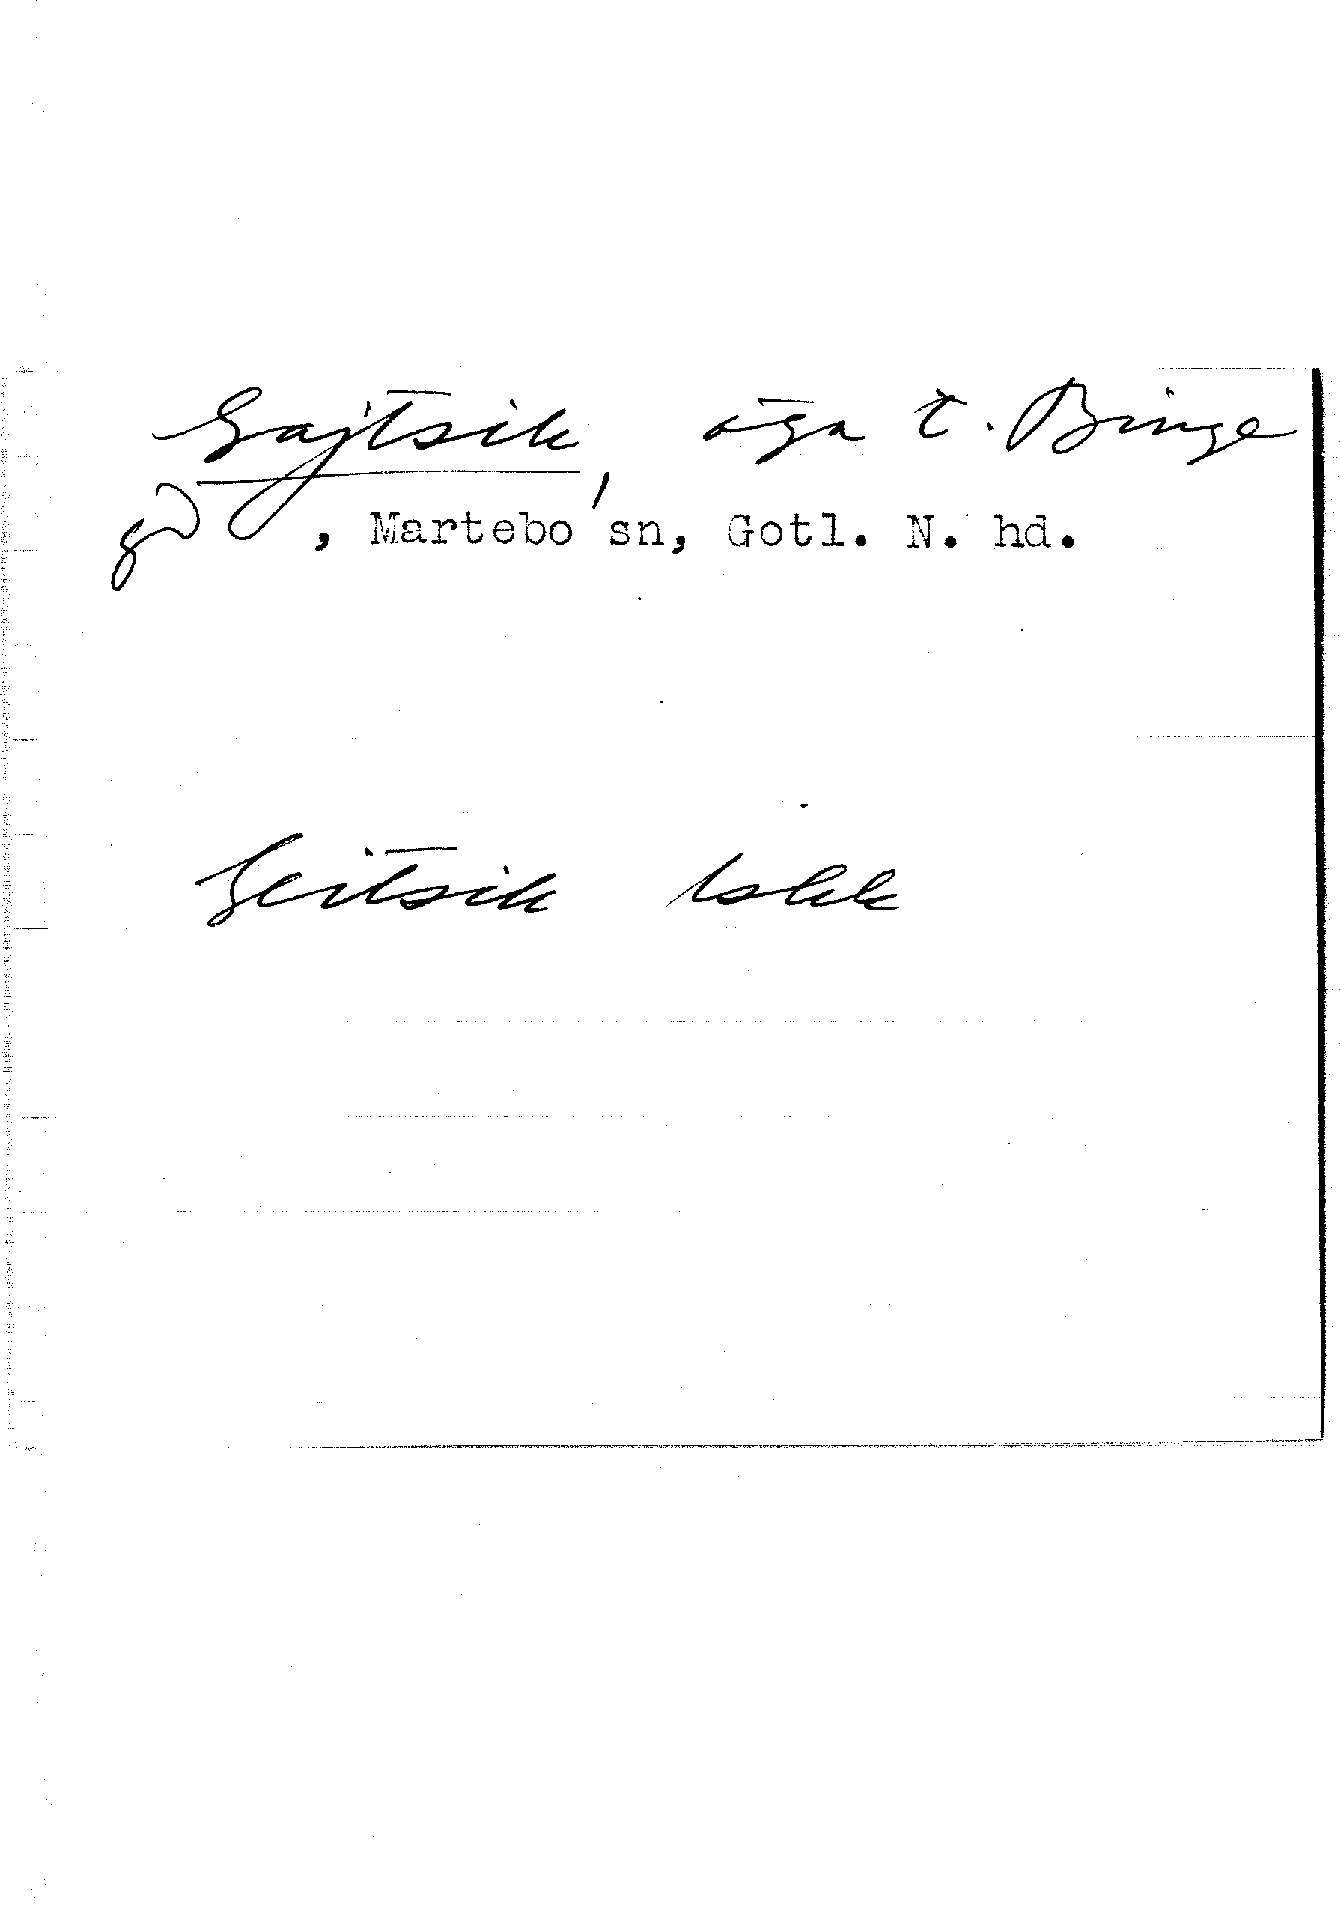 Gajtsik, äga t. Binge
gd, Martebo sn, Gotl. N. hd.
Geitsik